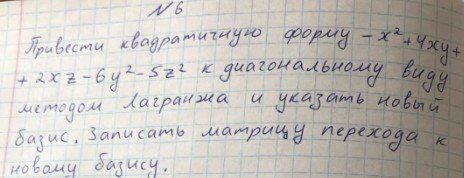 №6
Привести квадратичную форму -x²+4xy+
+2xz-6y²-5z² к диагональному виду
методом Лагранжа и указать новый
базис. Записать матрицу перехода к
новому базису.